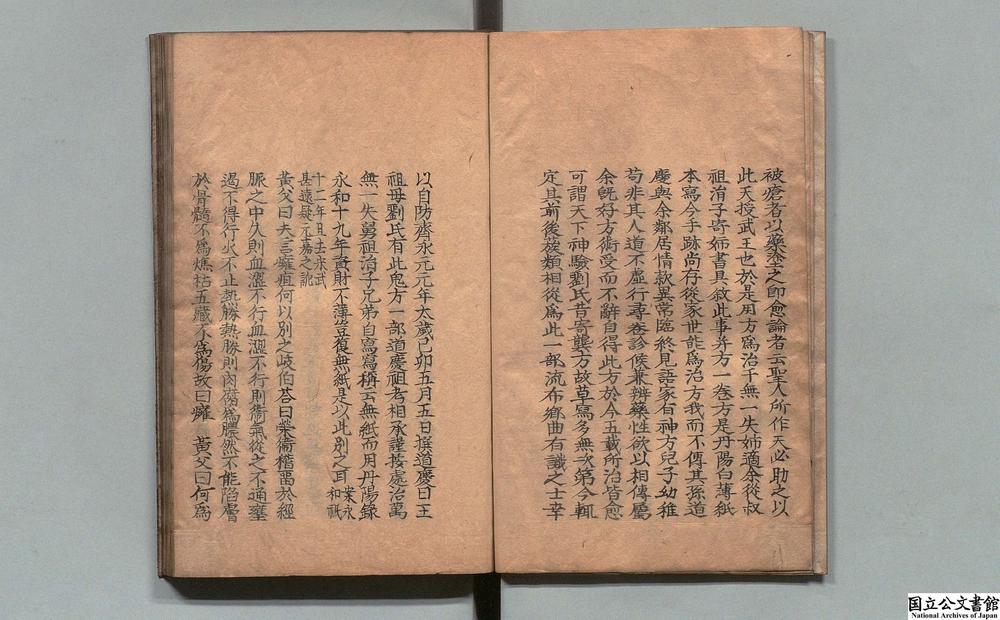 被瘡者以藥塗之即愈論者云聖人所作天必助之以
此天授武王也於是用方為治千無一失姉適余從叔
祖涓子寄姉書具敘此事并方一卷方是丹陽白薄紙
本寫今手跡尚存從家世能為治方我而不傳其孫道
慶與余鄰居情款異常臨終見語家有神方兒子幼稚
苟非其人道不虛行尋卷診候兼辨藥性欲以相傳屬
余既好方術受而不辭自得此方於今五載所治皆愈
可謂天下神驗劉氏昔寄龔方故草寫多無次第今輒
定其前後蔟類相從為此一部流布鄉曲有識之士幸
以自防齊永元元年太歲己卯五月五日撰道慶曰王
祖母劉氏有此鬼方一部道慶祖考相承謹按處治萬
無一失舅祖治子兄弟自寫寫稱云無紙而用丹陽錄
永和十九年資財不薄豈復無紙是以此別之耳 業永和祇
十二年且去宋武
甚遠疑元嘉之訛
黃父曰夫言癰疽何以別之岐伯荅曰榮衛稽留於經
脈之中久則血澀不行血澀不行則衛氣從之不通壅
遏不得行火不止熱勝熱勝則肉腐為膿然不能陷膚
於骨髓不為燋枯五臟不為傷故曰癰 黃父曰何為
国立公文書館
National Archives of Japan